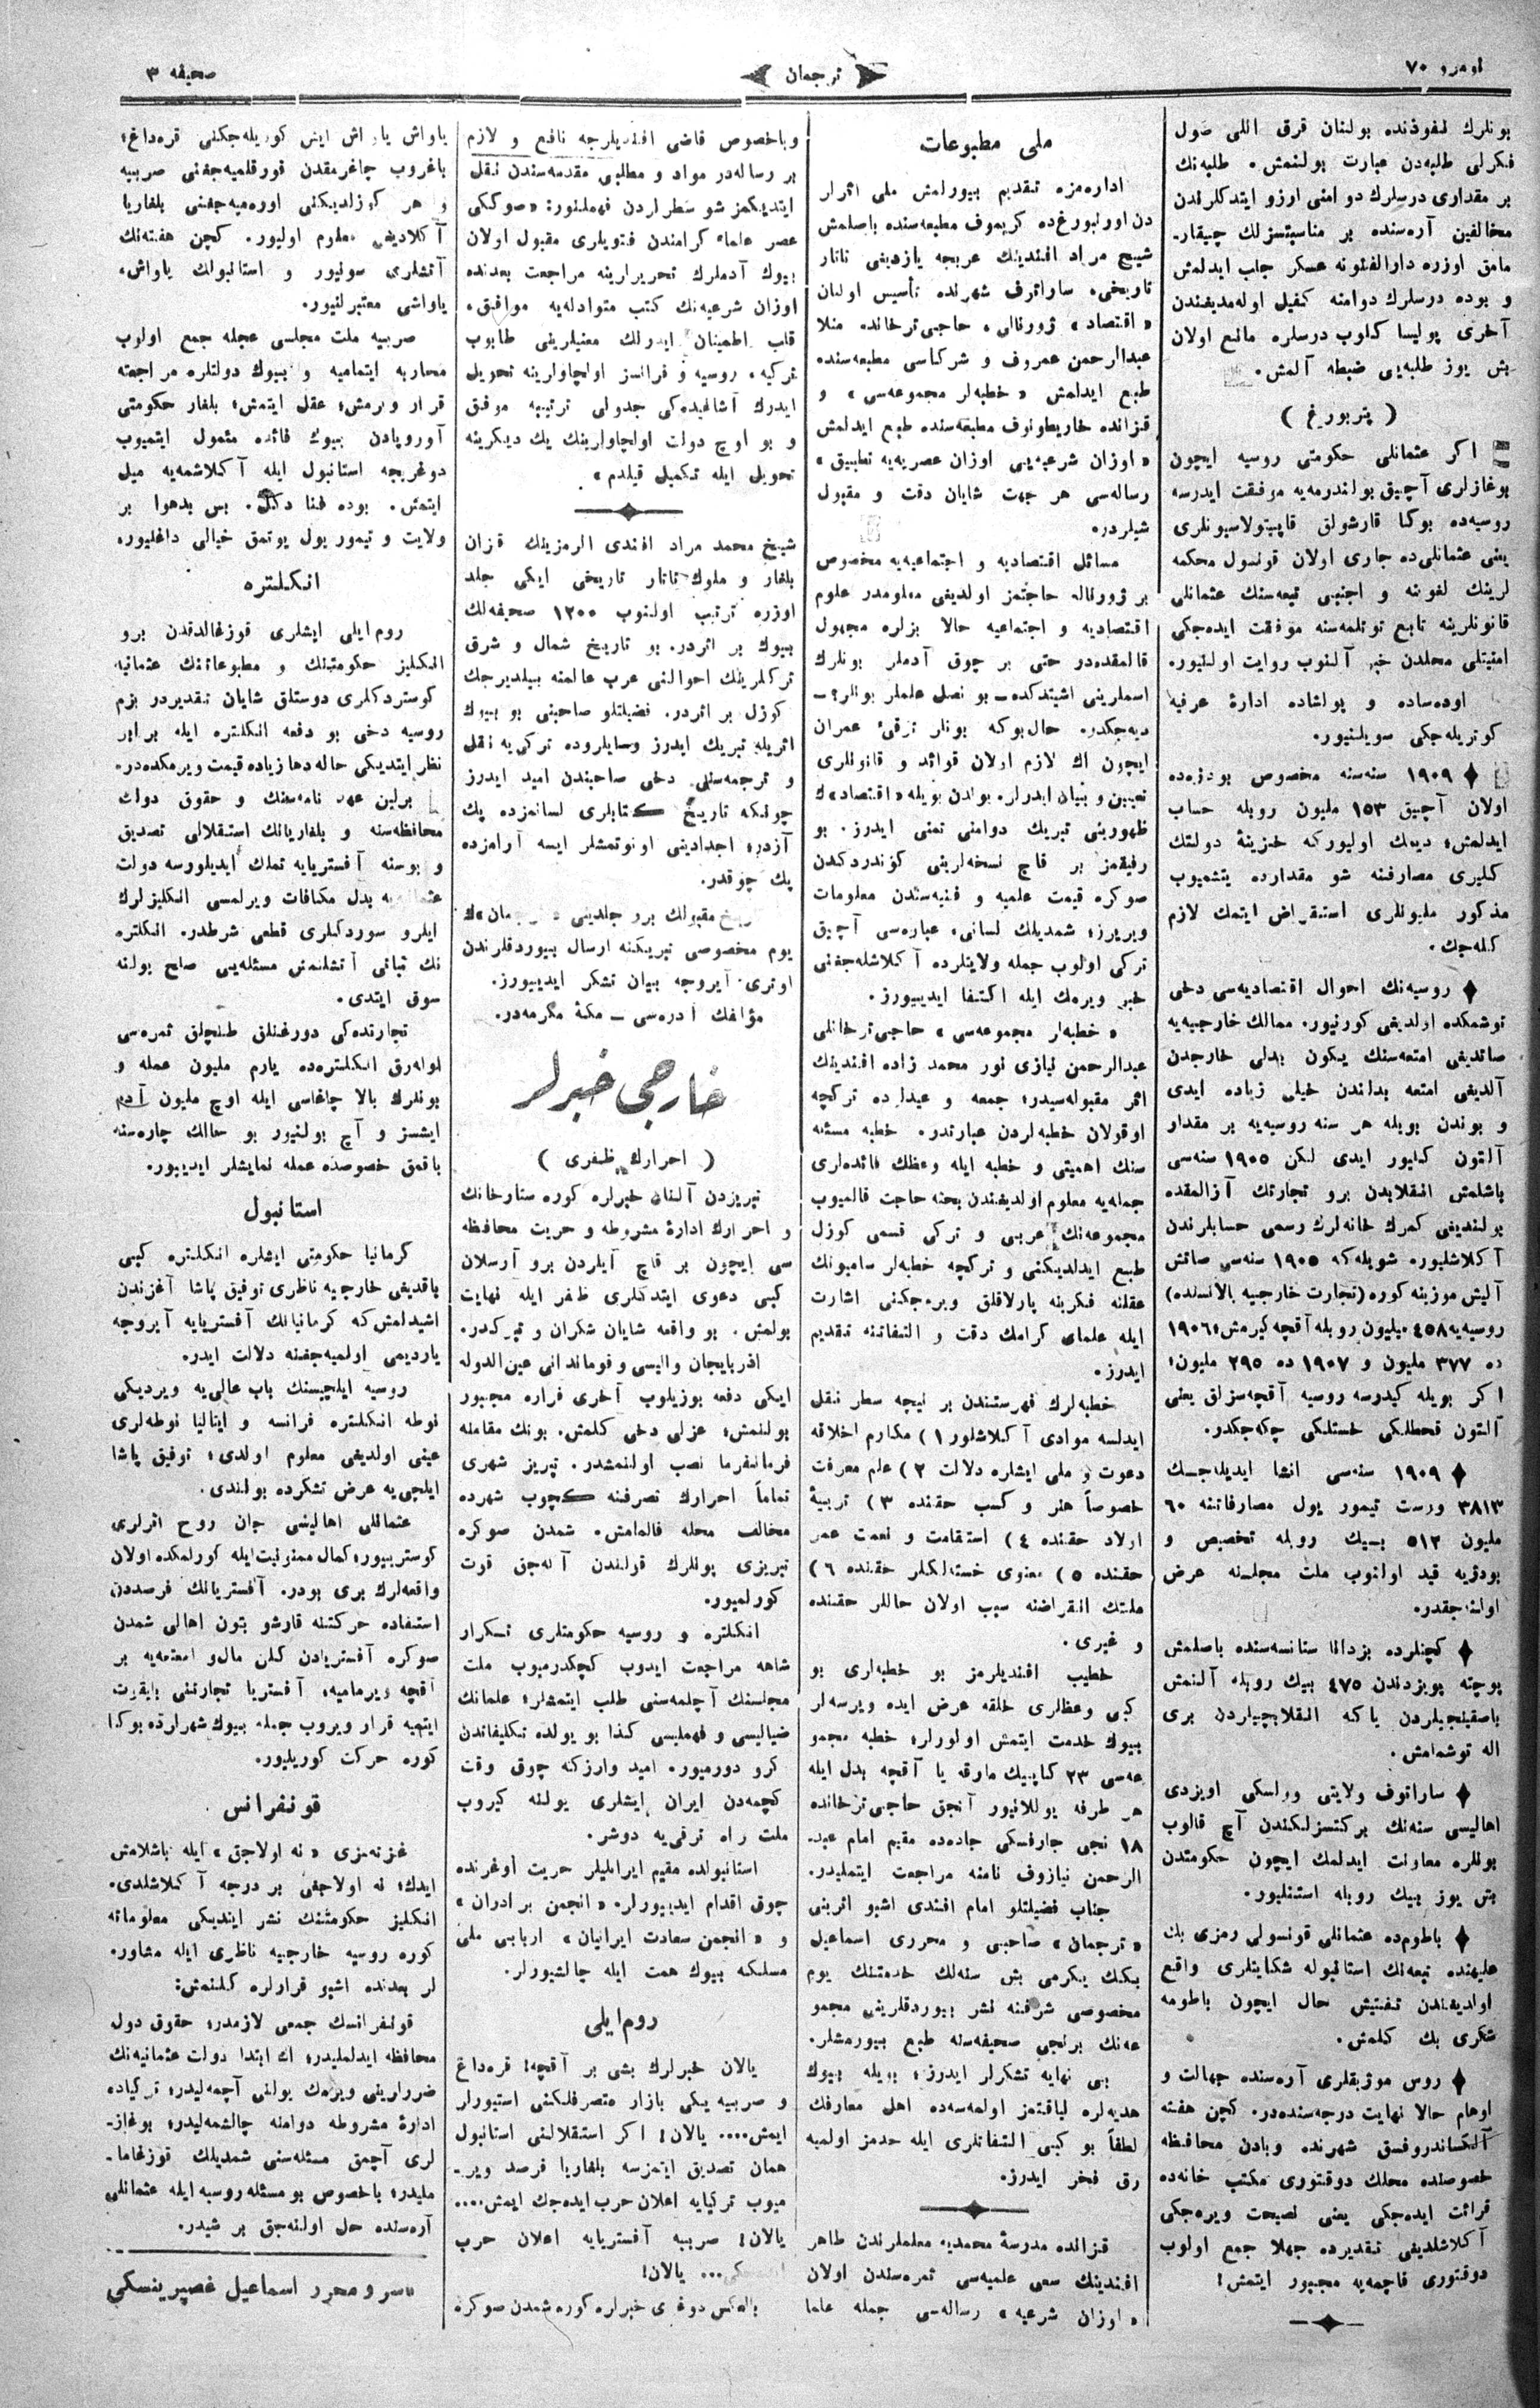 نومرو ٧٠
ترجمان
صحيفه ٣
بونلرك نفوذنده بولنان قرق اللی صول
فكرلی طلبه‌دن عبارت بولنمش. طلبه‌نك
بر مقداری درسلرك دوامنی ارزو ايتدكلرندن
مخالفين آره‌سنده بر مناسبتسزلك چيقار-
مامق اوزره دارالفنونه عسكر جلب ايدلمش
و بوده درسلرك دوامنه كفيل اوله‌مديغندن
آخری پوليسا كلوب درسلره مانع اولان
بش يوز طلبه‌يی ضبطه آلمش.
( پتربورغ )
اكر عثمانلی حكومتی روسيه ايچون
بوغازلری آچيق بولندرمه‌يه موفقت ايدرسه
روسيه‌ده بوكا قارشولق قاپيتولاسيونلری
يعنی عثمانلی‌ده جاری اولان قونسول محكمه
لرينك لغونه و اجنبی تبعه‌سنك عثمانلی
قانونلرينه تابع توتلمه‌سنه موفقت ايده‌جكی
امنيتلی محلدن خبر آلنوب روايت اولنيور.
اوده‌ساده و يولشاده ادارۀ عرفيه
كوتريله‌جكی سويلنيور.
١٩٠٩ سنه‌سنه مخصوص بودژه‌ده
اولان آچيق ١٥٣ مليون روبله حساب
ايدلمش؛ ديمك اوليوركه خزينۀ دولتك
كليری مصارفنه شو مقدارده يتشميوب
مذكور مليونلری استقراض ايتمك لازم
كله‌جك.
روسيه‌نك احوال اقتصاديه‌سی دخی
توشمكده اولديغی كورنيور. ممالك خارجيه‌يه
صاتديغی امتعه‌سنك يكون بدلی خارجدن
آلديغی امتعه بدلندن خيلی زياده ايدی
و بوندن بويله هر سنه روسيه‌يه بر مقدار
آلتون كليور ايدی لكن ١٩٠٥ سنه‌سی
باشلمش انقلابدن برو تجارتك آزالمقده
بولنديغی كمرك خانه‌لرك رسمی حسابلرندن
آكلاشليور. شويله‌كه ١٩٠٥ سنه‌سی صاتش
آليش موزينه كوره (تجارت خارجيه بالانسنده)
روسيه‌يه ٤٥٨ مليون روبله آقچه كيرمش؛ ١٩٠٦
ده ٣٧٧ مليون و ١٩٠٧ ده ٢٩٥ مليون؛
اكر بويله كيدرسه روسيه آقچه‌سزلق يعنی
آلتون قحطلكی خستلكی چكه‌جكدر.
١٩٠٩ سنه‌سی انشا ايديله‌جك
٣٨١٣ ورست تيمور يول مصارفاتنه ٦٠
مليون ٥١٢ بيك روبله تخصيص و
بودژيه قيد اولنوب ملت مجلسنه عرض
اولنه‌جقدر.
كچنلرده بزدانا ستانسه‌سنده باصلمش
پوچته پويزدندن ٤٧٥ بيك روبله آلنمش
باصقينجيلردن ياكه انقلابچيلردن بری
اله توشمامش.
ساراتوف ولايتی وولسكی اويزدی
اهاليسی سنه‌نك بركتسزلكندن آچ قالوب
بونلره معاونت ايدلمك ايچون حكومتدن
بش يوز بيك روبله استنليور.
باطوم‌ده عثمانلی قونسولی رمزی بك
عليهنده تبعه‌نك استانبوله شكايتلری واقع
اولديغندن تفتيش حال ايچون باطومه
شكری بك كلمش.
روس موژيقلری آره‌سنده جهالت و
اوهام حالا نهايت درجه‌سنده‌در. كچن هفته
آلكساندروفسق شهرنده وبادن محافظه
خصوصنده محلك دوقتوری مكتب خانه‌ده
قرائت ايده‌جكی يعنی نصيحت ويره‌جكی
آكلاشلديغی تقديرده جهلا جمع اولوب
دوقتوری قاچمه‌يه مجبور ايتمش!
ملی مطبوعات
اداره‌مزه تقديم بيورلمش ملی اثرلر
دن اورنبورغ‌ده كريموف مطبعه‌سنده باصلمش
شيخ مراد افندينك عربجه يازديغی تاتار
تاريخی، ساراتوف شهرنده تأسيس اولنان
«اقتصاد» ژورنالی، حاجی‌ترخانده منلا
عبدالرحمن عمروف و شركاسی مطبعه‌سنده
طبع ايدلمش «خطبه‌لر مجموعه‌سی» و
قزانده خاريطونوف مطبعه‌سنده طبع ايدلمش
«اوزان شرعيه‌يی اوزان عصريه‌يه تطبيق»
رساله‌سی هر جهت شايان دقت و مقبول
شيلردر.
مسائل اقتصاديه و اجتماعيه‌يه مخصوص
بر ژورناله حاجتمز اولديغی معلومدر علوم
اقتصاديه و اجتماعيه حالا بزلره مجهول
قالمقده‌در حتی بر چوق آدملر بونلرك
اسملرينی اشيتدكده - بو نصل علملر بولار؟ -
ديه‌جكدر. حال‌بوكه بونلر ترقیٔ عمران
ايچون اك لازم اولان قوائد و قانونلری
تعيين و بيان ايدرلر. بوندن بويله «اقتصاد»ك
ظهورينی تبريك دوامنی تمنی ايدرز. بو
رفيقمز بر قاچ نسخه‌لرينی كوندردكدن
صوكره قيمت علميه و فنيه‌سندن معلومات
ويريرز؛ شمديلك لسانی، عباره‌سی آچيق
تركی اولوب جمله ولايتلرده آكلاشله‌جغنی
خبر ويرمك ايله اكتفا ايدييورز.
«خطبه‌لر مجموعه‌سی» حاجی‌ترخانلی
عبدالرحمن نيازی نور محمد زاده افندينك
اثر مقبوله‌سيدر؛ جمعه و عيدلرده تركچه
اوقولان خطبه‌لردن عبارتدر. خطبه مسئله
سنك اهميتی و خطبه ايله وعظك فائده‌لری
جمله‌يه معلوم اولديغندن بحثه حاجت قالميوب
مجموعه‌نك عربی و تركی قسمی كوزل
طبع ايدلديكنی و تركچه خطبه‌لر سامعونك
عقلنه فكرينه پارلاقلق ويره‌جكنی اشارت
ايله علمای كرامك دقت و التفاتنه تقديم
ايدرز.
خطبه‌لرك فهرستندن بر نيچه سطر نقل
ايدلسه موادی آكلاشلور ١) مكارم اخلاقه
دعوت و ملی ايشلره دلالت ٢) علم معرفت
خصوصاً هنر و كسب حقنده ٣) تربيۀ
اولاد حقنده ٤) استقامت و نعمت عمر
حقنده ٥) معنوی خسته‌لكلر حقنده ٦)
ملتك انقراضنه سبب اولان حاللر حقنده
و غيری.
خطيب افنديلرمز بو خطبه‌لری بو
كبی وعظلری خلقه عرض ايده ويرسه‌لر
بيوك خدمت ايتمش اولورلر؛ خطبه مجمو
عه‌سی ٢٣ كاپيك مارقه يا آقچه بدل ايله
هر طرفه يوللانيور آنجق حاجی‌ترخانده
١٨ نجی جارفسكی جاده‌ده مقيم امام عبد-
الرحمن نيازوف نامنه مراجعت ايتمليدر.
جناب فضيلتلو امام افندی اشبو اثرينی
«ترجمان» صاحبی و محرری اسماعيل
بكك يكرمی بش سنه‌لك خدمتنك يوم
مخصوصی شرفنه نشر بيوردقلرينی مجمو
عه‌نك برنجی صحيفه‌سنه طبع بيورمشلر.
بی نهايه تشكرلر ايدرز؛ بويله بيوك
هديه‌لره لياقتمز اولمه‌سه‌ده اهل معارفك
لطفاً بو كبی التفاتلری ايله حدمز اولميه
رق فخر ايدرز.
قزانده مدرسۀ محمديه معلملرندن طاهر
افندينك سعی علميه‌سی ثمره‌سندن اولان
«اوزان شرعيه» رساله‌سی جمله علما
وباخصوص قاضی افنديلرجه نافع و لازم
بر رساله‌در مواد و مطالبی مقدمه‌سندن نقل
ايتديكمز شو سطرلردن فهملنور: «صوككی
عصر علماء كرامندن فتويلری مقبول اولان
بيوك آدملرك تحريرلرينه مراجعت بعدنده
اوزان شرعيه‌نك كتب متوادله‌يه موافق،
قلب اطمينان ايدرلك معنيلرينی طابوب
تركيه، روسيه و فرانسز اولچاولرينه تحويل
ايدرك آشاغيده‌كی جدولی ترتيبه موفق
و بو اوچ دولت اولچاولرينك يك ديكرينه
تحويل ايله تكميل قيلدم»
شيخ محمد مراد افندی الرمزينك قزان
بلغار و ملوك تاتار تاريخی ايكی جلد
اوزره ترتيب اولنوب ١٢٠٠ صحيفه‌لك
بيوك بر اثردر. بو تاريخ شمال و شرق
تركلرينك احوالنی عرب عالمنه بيلديرجك
كوزل بر اثردر. فضيلتلو صاحبنی بو بيوك
اثريله تبريك ايدرز وسايلروده تركی‌يه نقل
و ترجمه‌سنی دخی صاحبندن اميد ايدرز
چونكه تاريخ كتابلری لسانمزده پك
آزدر؛ اجدادينی اونوتمشلر ايسه آرامزده
پك چوقدر.
مقبولك برر جلدينی «ترجمان»ك
يوم مخصوصی تبريكنه ارسال بيوردقلرندن
اوتری آيروجه بيان تشكر ايدييورز.
مؤلفك ادره‌سی - مكۀ مكرمه‌در.
خارجی خبرلر
( احرارك ظفری )
تبريزدن آلنان خبرلره كوره ستارخانك
و احرارك ادارۀ مشروطه و حريت محافظه
سی ايچون بر قاچ آيلردن برو آرسلان
كبی دعوی ايتدكلری ظفر ايله نهايت
بولمش. بو واقعه شايان شكران و تبركدر.
اذربايجان واليسی و قوماندانی عين‌الدوله
ايكی دفعه بوزيلوب آخری فراره مجبور
بولنمش؛ عزلی دخی كلمش. بونك مقامنه
فرمانفرما نصب اولنمشدر. تبريز شهری
تماماً احرارك تصرفنه كچوب شهرده
مخالف محله قالمامش. شمدن صوكره
تبريزی بونلرك قولندن آله‌جق قوت
كورلميور.
انكلتره و روسيه حكومتلری تكرار
شاهه مراجعت ايدوب كچكدرميوب ملت
مجلسنك آچلمه‌سنی طلب ايتمشلر؛ علمانك
ضياليسی و فهمليسی كذا بو يولده تكليفاتدن
كرو دورميور. اميد واركه چوق وقت
كچمه‌دن ايران ايشلری يولنه كيروب
ملت راه ترقی‌يه دوشر.
استانبولده مقيم ايرانليلر حريت اوغرنده
چوق اقدام ايدييورلر. «انجمن برادران»
و «انجمن سعادت ايرانيان» اربابی ملی
مسلكنه بيوك همت ايله چالشيورلر.
روم‌ايلی
يالان خبرلرك بشی بر آقچه! قره‌داغ
و صربيه يكی بازار متصرفلكنی استيورلر
ايمش.... يالان! اكر استقلالنی استانبول
همان تصديق ايتمزسه بلغاريا فرصد وير-
ميوب تركيايه اعلان حرب ايده‌جك ايمش....
يالان! صربيه آفستريايه اعلان حرب
... يالان!
بالعكس دوغری خبرلره كوره شمدن صوكره
ياواش ياواش ايش كوريله‌جكنی قره‌داغ؛
باغروب چاغرمقدن قورقلميه‌جغنی صربيه
و هر كوزلديكنی اوره‌ميه‌جغنی بلغاريا
آكلاديغی معلوم اوليور. كچن هفته‌نك
آتشلری سونيور و استانبولك ياواش،
ياواشی معتبرلنيور.
صربيه ملت مجلسی عجله جمع اولوب
محاربه ايتماميه و بيوك دولتلره مراجعته
قرار ويرمش؛ عقل ايتمش؛ بلغار حكومتی
آوروپادن بيوك فائده مئمول ايتميوب
دوغريجه استانبول ايله آكلاشمه‌يه ميل
ايتمش. بوده فنا دكل. بس بدهوا بر
ولايت و تيمور يول يوتمق خيالی داغليور.
انكلتره
روم ايلی ايشلری قوزغالدقدن برو
انكليز حكومتنك و مطبوعاتنك عثمانيه
كوستردكلری دوستلق شايان تقديردر بزم
روسيه دخی بو دفعه انكلتره ايله برابر
نظر ايتديكی حاله دها زياده قيمت ويرمكده‌در.
برلين عهد نامه‌سنك و حقوق دولك
محافظه‌سنه و بلغاريانك استقلالی تصديق
و بوسنه آفستريايه تملك ايديلورسه دولت
عثمانيه‌يه بدل مكافات ويرلمسی انكليزلرك
ايلرو سوردكلری قطعی شرطدر. انكلتره
نك ثباتی آتشلنمش مسئله‌يی صلح يولنه
سوق ايتدی.
تجارتده‌كی دورغنلق طنچلق ثمره‌سی
اوله‌رق انكلتره‌ده يارم مليون عمله و
بونلرك بالا چاغاسی ايله اوچ مليون آدم
ايشسز و آچ بولنيور بو حالك چاره‌سنه
باقمق خصوصنده عمله نمايشلر ايدييور.
استانبول
كرمانيا حكومتی ايشلره انكلتره كبی
باقديغی خارجيه ناظری توفيق پاشا آغزندن
اشيدلمش‌كه كرمانيانك آفستريايه آيروجه
يارديمی اولميه‌جغنه دلالت ايدر.
روسيه ايلچيسنك باب عالی‌يه ويرديكی
نوطه انكلتره فرانسه و ايتاليا نوطه‌لری
عينی اولديغی معلوم اولدی؛ توفيق پاشا
ايلچی‌يه عرض تشكرده بولندی.
عثمانلی اهاليسی جان روح اثرلری
كوستريبور؛ كمال ممنونيت ايله كورلمكده اولان
واقعه‌لرك بری بودر. آفستريانك فرصددن
استفاده حركتنه قارشو بتون اهالی شمدن
صوكره آفستريادن كلن مال و امتعه‌يه بر
آقچه ويرماميه؛ آفستريا تجارتنی بايقوت
ايتميه قرار ويروب جمله بيوك شهرلرده بوكا
كوره حركت كوريليور.
قونفرانس
غزته‌مزی «نه اولاجق» ايله باشلامش
ايدك؛ نه اولاجغی بر درجه آكلاشلدی.
انكليز حكومتنك نشر ايتديكی معلوماته
كوره روسيه خارجيه ناظری ايله مشاور.
لر بعدنده اشبو قرارلره كلنمش:
قونفرانسك جمعی لازمدر؛ حقوق دول
محافظه ايدلمليدر؛ اك ابتدا دولت عثمانيه‌نك
ضررلرينی ويرمك يولنی آچمه‌ليدر؛ تركياده
ادارۀ مشروطه دوامنه چالشمه‌ليدر؛ بوغاز-
لری آچمق مسئله‌سنی شمديلك قوزغاما-
مليدر؛ باخصوص بو مسئله روسيه ايله عثمانلی
آره‌سنده حل اولنه‌جق بر شيدر.
سر و محرر اسماعيل غصپرينسكی